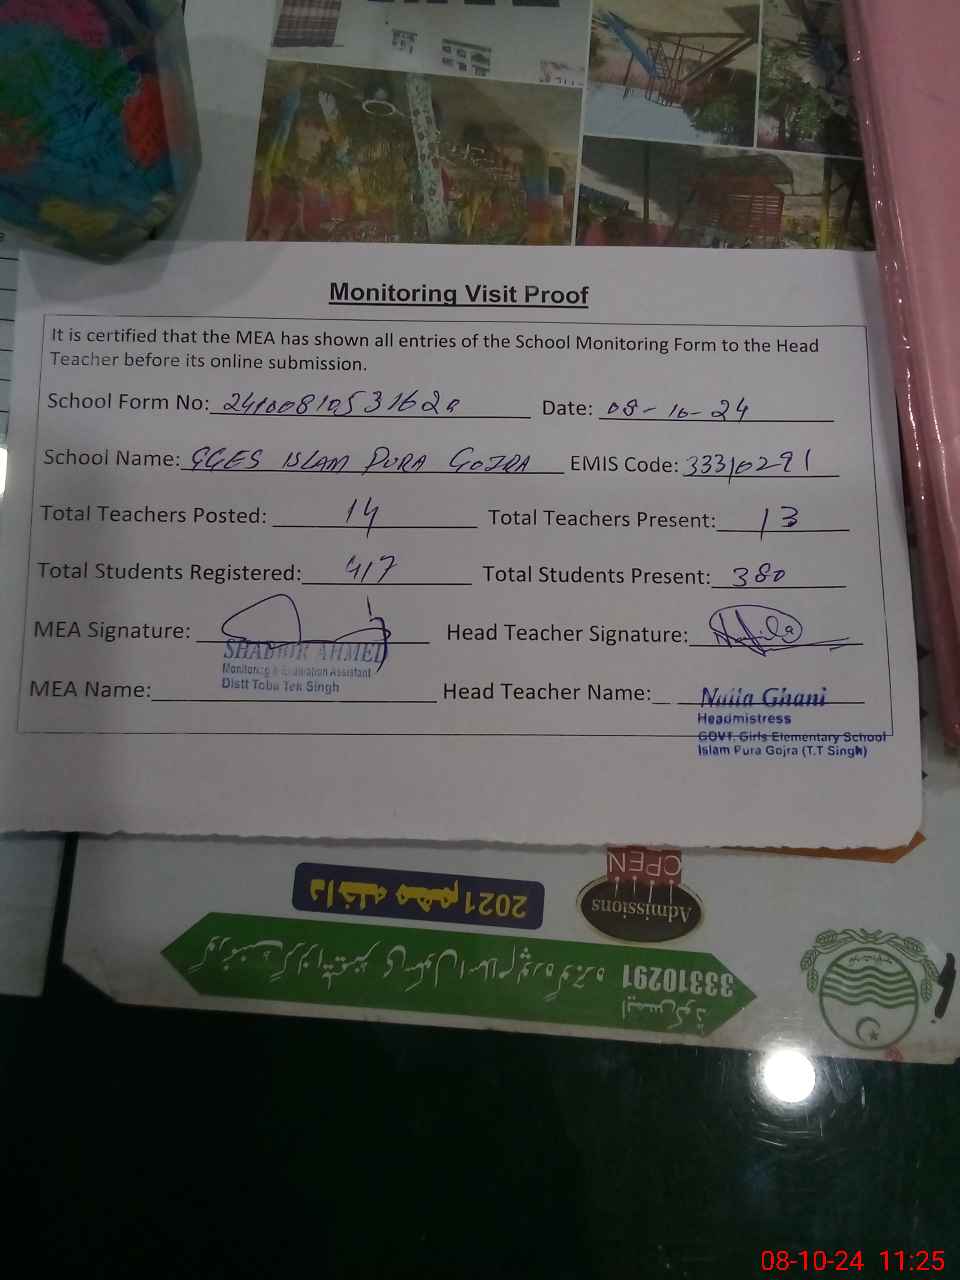 Monitoring Visit Proof
It is certified that the MEA has shown all entries of the School Monitoring Form to the Head
Teacher before its online submission.
School Form No: Date: 08-10-24
School Name: GGES ISLAM PURA GOJRA EMIS Code: 33310291
Total Teachers Posted: 14 Total Teachers Present: 13
Total Students Registered: 417 Total Students Present: 380
MEA Signature: Head Teacher Signature:
SHABBIR AHMED
Monitoring & Evaluation Assistant
Distt Toba Tek Singh
MEA Name: Head Teacher Name: Ghani
Headmistress
GOVT. Girls Elementary School
Islam Pura Gojra (T.T Singh)
OPEN
Admissions
داخلہ مہم 2021
گورنمنٹ گرلز ایلیمنٹری سکول اسلام پورہ گوجرہ
ایمس کوڈ 33310291
08-10-24 11:25